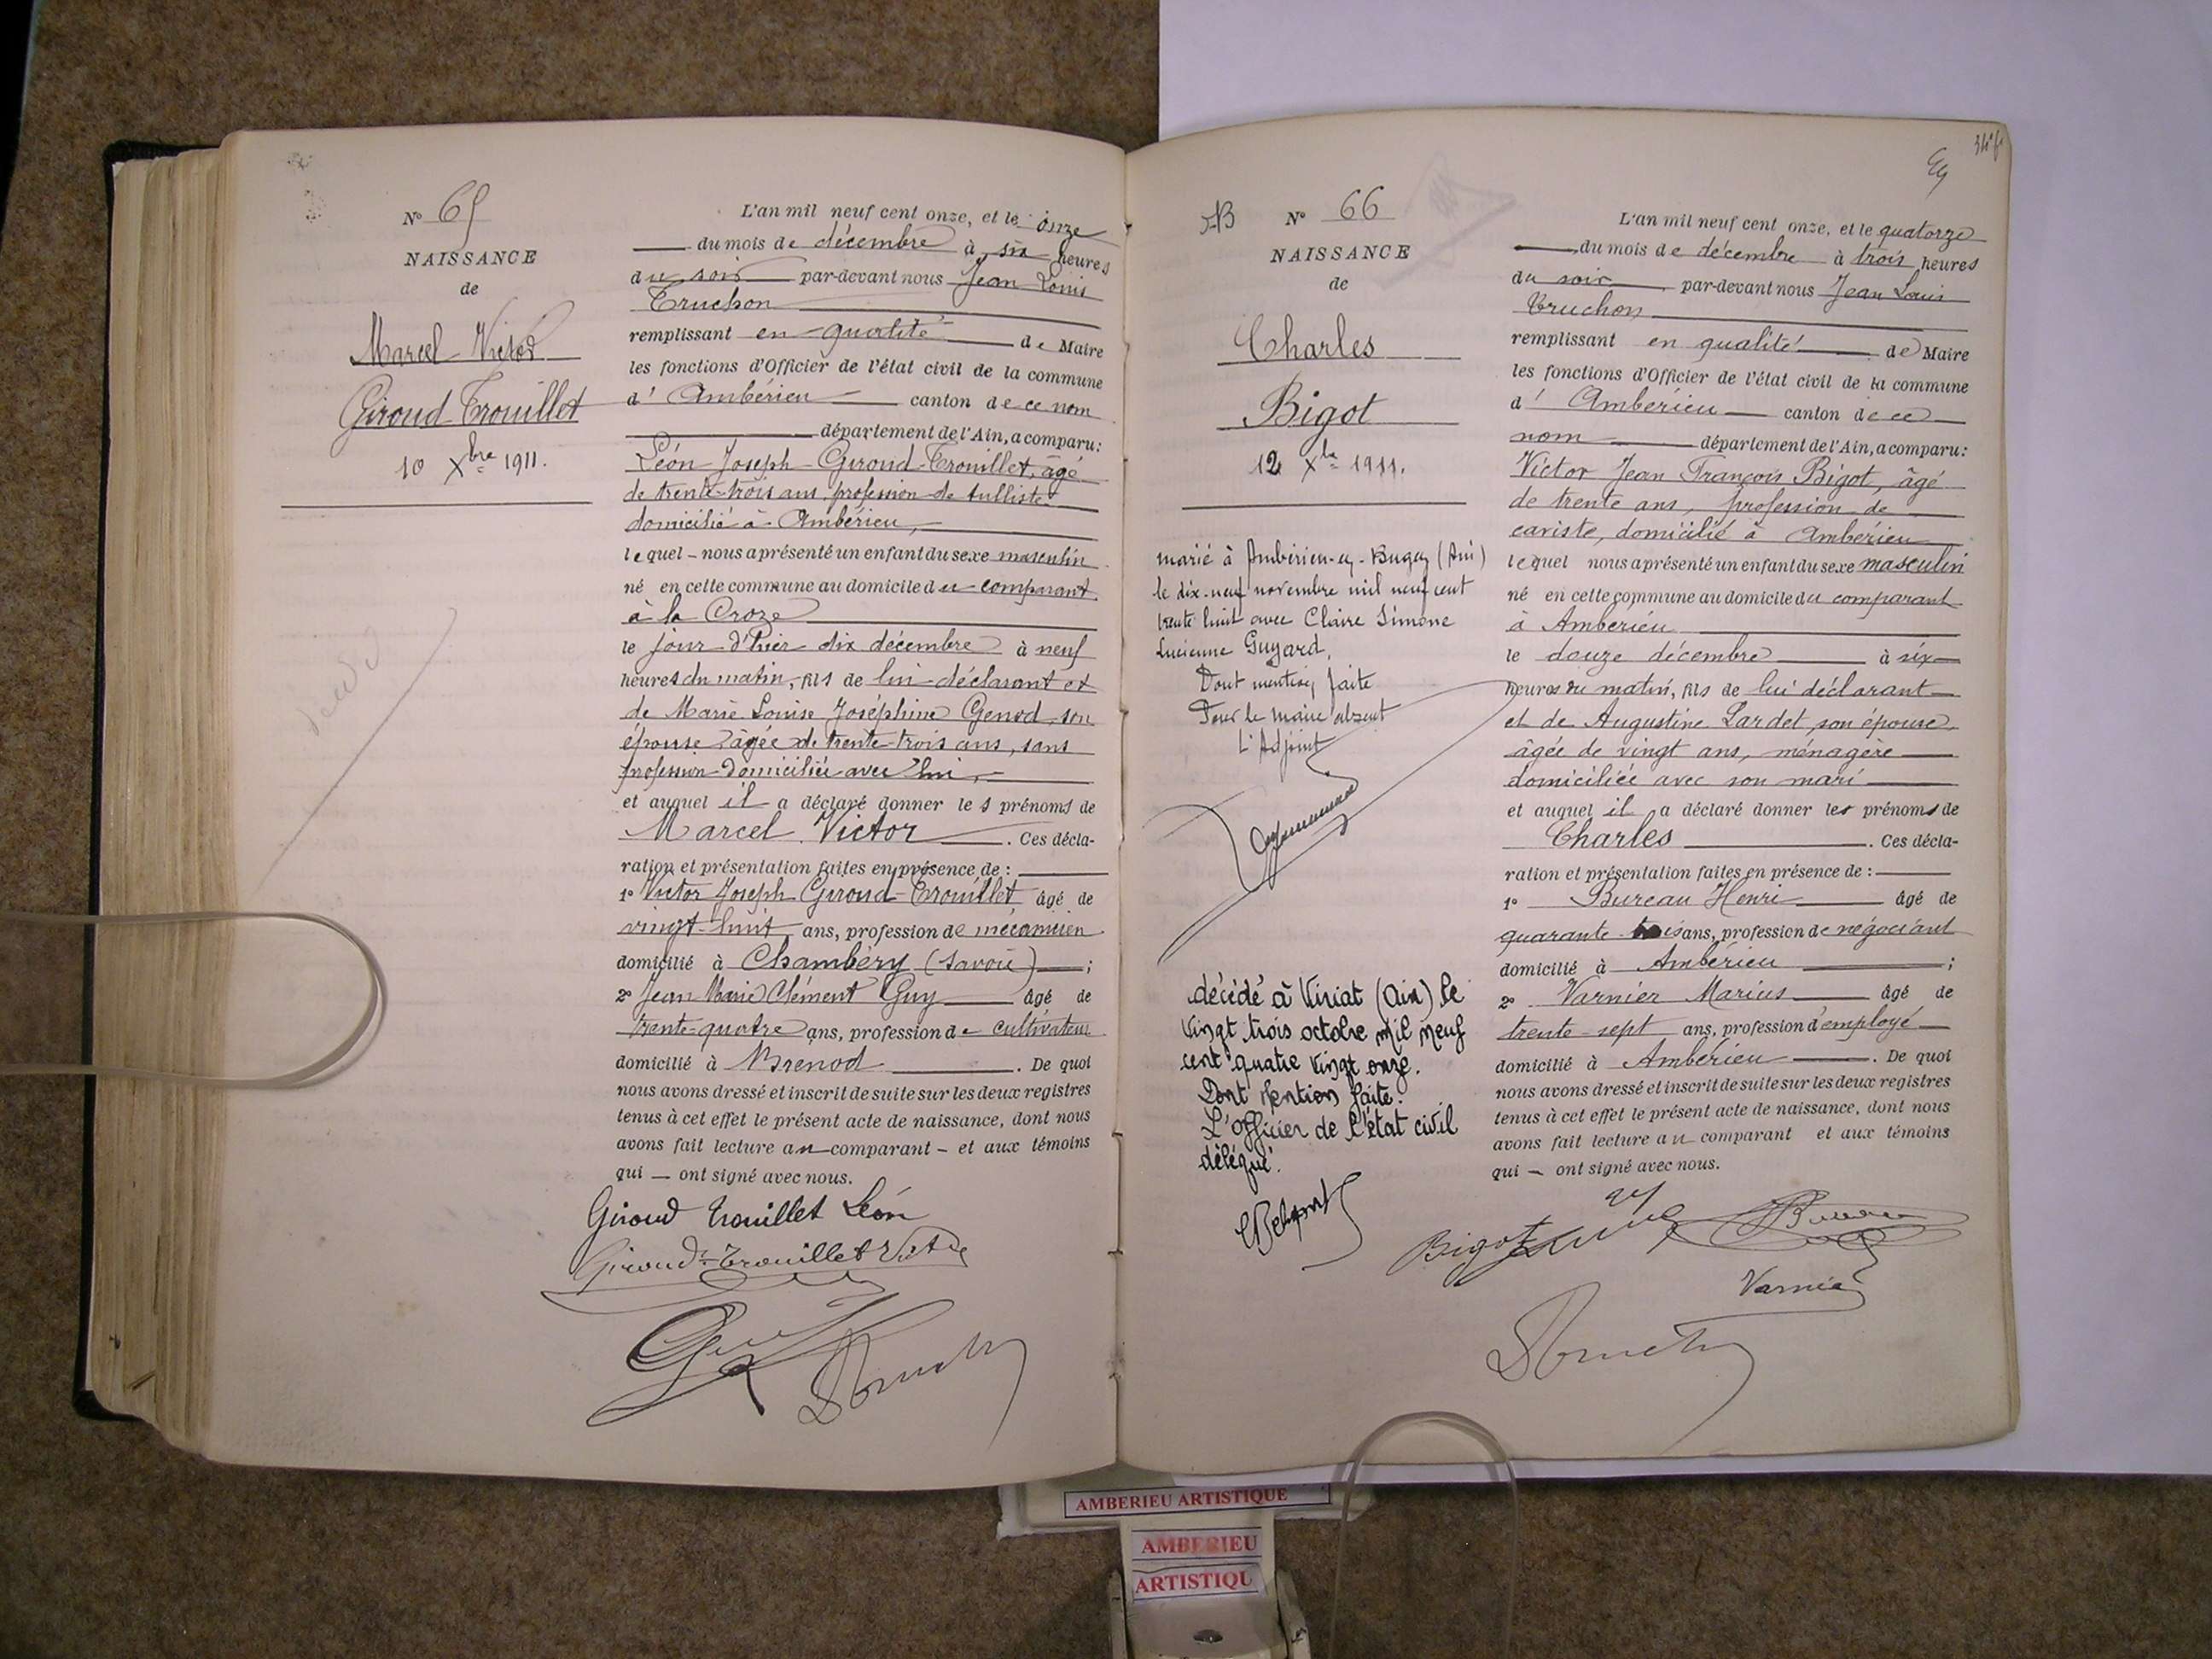 N° 65
NAISSANCE
de
Marcel Victor
Giroud-Trouillet
10 Xbre 1911.
L'an mil neuf cent onze, et le onze
du mois de décembre à six heures
du soir par-devant nous Jean Louis
Truchon
remplissant en qualité de Maire
les fonctions d'Officier de l'état civil de la commune
d'Ambérieu canton de ce nom
département de l'Ain, a comparu:
Léon Joseph Giroud-Trouillet, âgé
de trente-trois ans, profession de tulliste
domicilié à Ambérieu,
lequel - nous a présenté un enfant du sexe masculin
né en cette commune au domicile du comparant
à la Croze
le jour d'hier dix décembre à neuf
heures du matin, fils de lui déclarant et
de Marie Louise Joséphine Genod, son
épouse âgée de trente-trois ans, sans
profession domiciliée avec lui,
et auquel il a déclaré donner les prénoms de
Marcel Victor. Ces décla-
ration et présentation faites en présence de :
1° Victor Joseph Giroud-Trouillet âgé de
vingt-huit ans, profession de mécanicien
domicilié à Chambéry (Savoie) ;
2° Jean Marie Clément Guy âgé de
trente-quatre ans, profession de cultivateur
domicilié à Brenod. De quoi
nous avons dressé et inscrit de suite sur les deux registres
tenus à cet effet le présent acte de naissance, dont nous
avons fait lecture au comparant - et aux témoins
qui - ont signé avec nous.
Giroud Trouillet Léon
Giroud-Trouillet Victor
Guy
Truchon
B N° 66
NAISSANCE
de
Charles
Bigot
12 Xbre 1911.
marié à Ambérieu-en-Bugey (Ain)
le dix-neuf novembre mil neuf cent
trente huit avec Claire Simone
Lucienne Guyard,
Dont mention faite
Pour le maire absent
L'Adjoint
décédé à Viriat (Ain) le
vingt trois octobre mil neuf
cent quatre vingt onze.
Dont Mention faite.
L'officier de l'état civil
délégué.
L'an mil neuf cent onze, et le quatorze
du mois de décembre à trois heures
du soir par-devant nous Jean Louis
Truchon
remplissant en qualité de Maire
les fonctions d'Officier de l'état civil de la commune
d'Ambérieu canton de ce
nom département de l'Ain, a comparu:
Victor Jean François Bigot, âgé
de trente ans, profession de
caviste, domicilié à Ambérieu
lequel nous a présenté un enfant du sexe masculin
né en cette commune au domicile du comparant
à Ambérieu
le douze décembre à six
heures du matin, fils de lui déclarant
et de Augustine Lardet, son épouse,
âgée de vingt ans, ménagère
domiciliée avec son mari
et auquel il a déclaré donner les prénoms de
Charles. Ces décla-
ration et présentation faites en présence de :
1° Bureau Henri âgé de
quarante trois ans, profession de négociant
domicilié à Ambérieu ;
2° Varnier Marius âgé de
trente-sept ans, profession d'employé
domicilié à Ambérieu. De quoi
nous avons dressé et inscrit de suite sur les deux registres
tenus à cet effet le présent acte de naissance, dont nous
avons fait lecture au comparant et aux témoins
qui - ont signé avec nous.
Bigot
Bureau
Varnier
Truchon
AMBERIEU ARTISTIQUE
AMBERIEU
ARTISTIQU